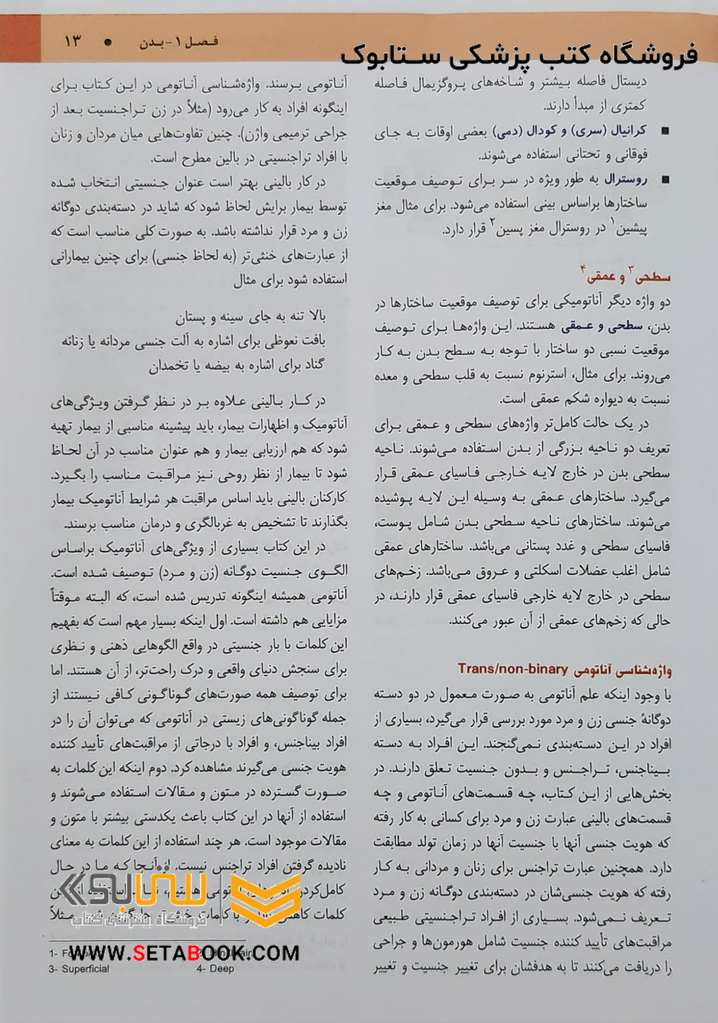 فصل ۱- بدن • ۱۳
فروشگاه کتب پزشکی ستابوک
دیستال فاصله بیشتر و شاخه‌های پروگزیمال فاصله
کمتری از مبدأ دارند.
■ کرانیال (سری) و کودال (دمی) بعضی اوقات به جای
فوقانی و تحتانی استفاده می‌شوند.
■ روسترال به طور ویژه در سر برای توصیف موقعیت
ساختارها براساس بینی استفاده می‌شود. برای مثال مغز
پیشین۱ در روسترال مغز پسین۲ قرار دارد.
سطحی۳ و عمقی۴
دو واژه دیگر آناتومیکی برای توصیف موقعیت ساختارها در
بدن، سطحی و عمقی هستند. این واژه‌ها برای توصیف
موقعیت نسبی دو ساختار با توجه به سطح بدن به کار
می‌روند. برای مثال، استرنوم نسبت به قلب سطحی و معده
نسبت به دیواره شکم عمقی است.
در یک حالت کامل‌تر واژه‌های سطحی و عمقی برای
تعریف دو ناحیه بزرگی از بدن استفاده می‌شوند. ناحیه
سطحی بدن در خارج لایه خارجی فاسیای عمقی قرار
می‌گیرد. ساختارهای عمقی به وسیله این لایه پوشیده
می‌شوند. ساختارهای ناحیه سطحی بدن شامل پوست،
فاسیای سطحی و غدد پستانی می‌باشد. ساختارهای عمقی
شامل اغلب عضلات اسکلتی و عروق می‌باشد. زخم‌های
سطحی در خارج لایه خارجی فاسیای عمقی قرار دارند، در
حالی که زخم‌های عمقی از آن عبور می‌کنند.
واژه‌شناسی آناتومی Trans/non-binary
با وجود اینکه علم آناتومی به صورت معمول در دو دسته
دوگانۀ جنسی زن و مرد مورد بررسی قرار می‌گیرد، بسیاری از
افراد در این دسته‌بندی نمی‌گنجند. این افراد به دسته
بیناجنس، تراجنس و بدون جنسیت تعلق دارند. در
بخش‌هایی از این کتاب، چه قسمت‌های آناتومی و چه
قسمت‌های بالینی عبارت زن و مرد برای کسانی به کار رفته
که هویت جنسی آنها با جنسیت آنها در زمان تولد مطابقت
دارد. همچنین عبارت تراجنس برای زنان و مردانی به کار
رفته که هویت جنسی‌شان در دسته‌بندی دوگانه زن و مرد
تعریف نمی‌شود. بسیاری از افراد تراجنسیتی طبیعی
مراقبت‌های تأیید کننده جنسیت شامل هورمون‌ها و جراحی
را دریافت می‌کنند تا به هدفشان برای تغییر جنسیت و تغییر
آناتومی برسند. واژه‌شناسی آناتومی در این کتاب برای
اینگونه افراد به کار می‌رود (مثلاً در زن تراجنسیت بعد از
جراحی ترمیمی واژن). چنین تفاوت‌هایی میان مردان و زنان
با افراد تراجنسیتی در بالین مطرح است.
در کار بالینی بهتر است عنوان جنسیتی انتخاب شده
توسط بیمار برایش لحاظ شود که شاید در دسته‌بندی دوگانه
زن و مرد قرار نداشته باشد. به صورت کلی مناسب است که
از عبارت‌های خنثی‌تر (به لحاظ جنسی) برای چنین بیمارانی
استفاده شود برای مثال
بالا تنه به جای سینه و پستان
بافت نعوظی برای اشاره به آلت جنسی مردانه یا زنانه
گناد برای اشاره به بیضه یا تخمدان
در کار بالینی علاوه بر در نظر گرفتن ویژگی‌های
آناتومیک و اظهارات بیمار، باید پیشینه مناسبی از بیمار تهیه
شود که هم ارزیابی بیمار و هم عنوان مناسب در آن لحاظ
شود تا بیمار از نظر روحی نیز مراقبت مناسب را بگیرد.
کارکنان بالینی باید اساس مراقبت هر شرایط آناتومیک بیمار
بگذارند تا تشخیص به غربالگری و درمان مناسب برسند.
در این کتاب بسیاری از ویژگی‌های آناتومیک براساس
الگوی جنسیت دوگانه (زن و مرد) توصیف شده است.
آناتومی همیشه اینگونه تدریس شده است، که البته موقتاً
مزایایی هم داشته است. اول اینکه بسیار مهم است که بفهیم
این کلمات با بار جنسیتی در واقع الگوهایی ذهنی و نظری
برای سنجش دنیای واقعی و درک راحت‌تر، از آن هستند. اما
برای توصیف همه صورت‌های گوناگونی کافی نیستند از
جمله گوناگونی‌های زیستی در آناتومی که می‌توان آن را در
افراد بیناجنس، و افراد با درجاتی از مراقبت‌های تأیید کننده
هویت جنسی می‌گیرند مشاهده کرد. دوم اینکه این کلمات به
صورت گسترده در متون و مقالات استفاده می‌شوند و
استفاده از آنها در این کتاب باعث یکدستی بیشتر با متون و
مقالات موجود است. هر چند استفاده از این کلمات به معنای
نادیده گرفتن افراد تراجنس نیست. از آنجا که ما در حال
کامل‌کردن
کلمات با کلمات مثلاً
ستابوک
فروشگاه اینترنتی کتاب
WWW.SETABOOK.COM
3- Superficial
4- Deep